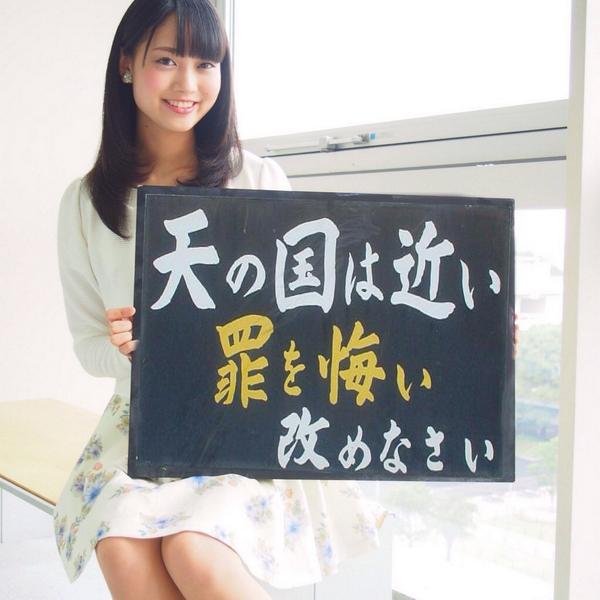 天の国は近い
罪を悔い
改めなさい